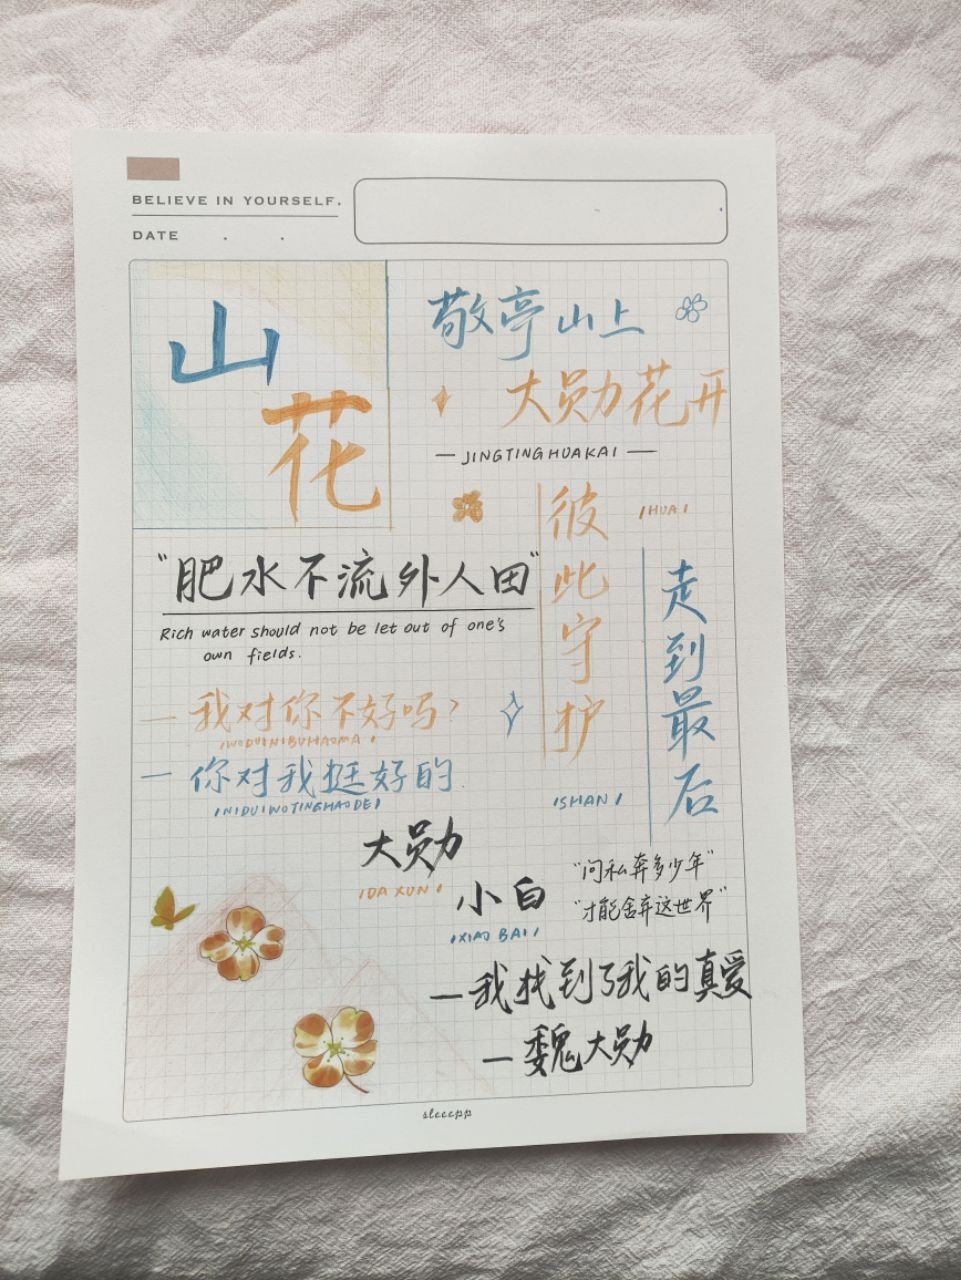 BELIEVE IN YOURSELF.
DATE . .
山
花
敬亭山上
大勋花开
—JINGTINGHUAKAI—
彼此守护
/HUA/
走到最后
/SHAN/
"肥水不流外人田"
Rich water should not be let out of one's
own fields.
—我对你不好吗?
/WODUINIBUHAOMA/
—你对我挺好的.
/NIDUIWOTINGHAODE/
大勋
/DA XUN/
小白
/XIAO BAI/
"问私奔多少年"
"才能舍弃这世界"
—我找到了我的真爱
—魏大勋
sleeepp